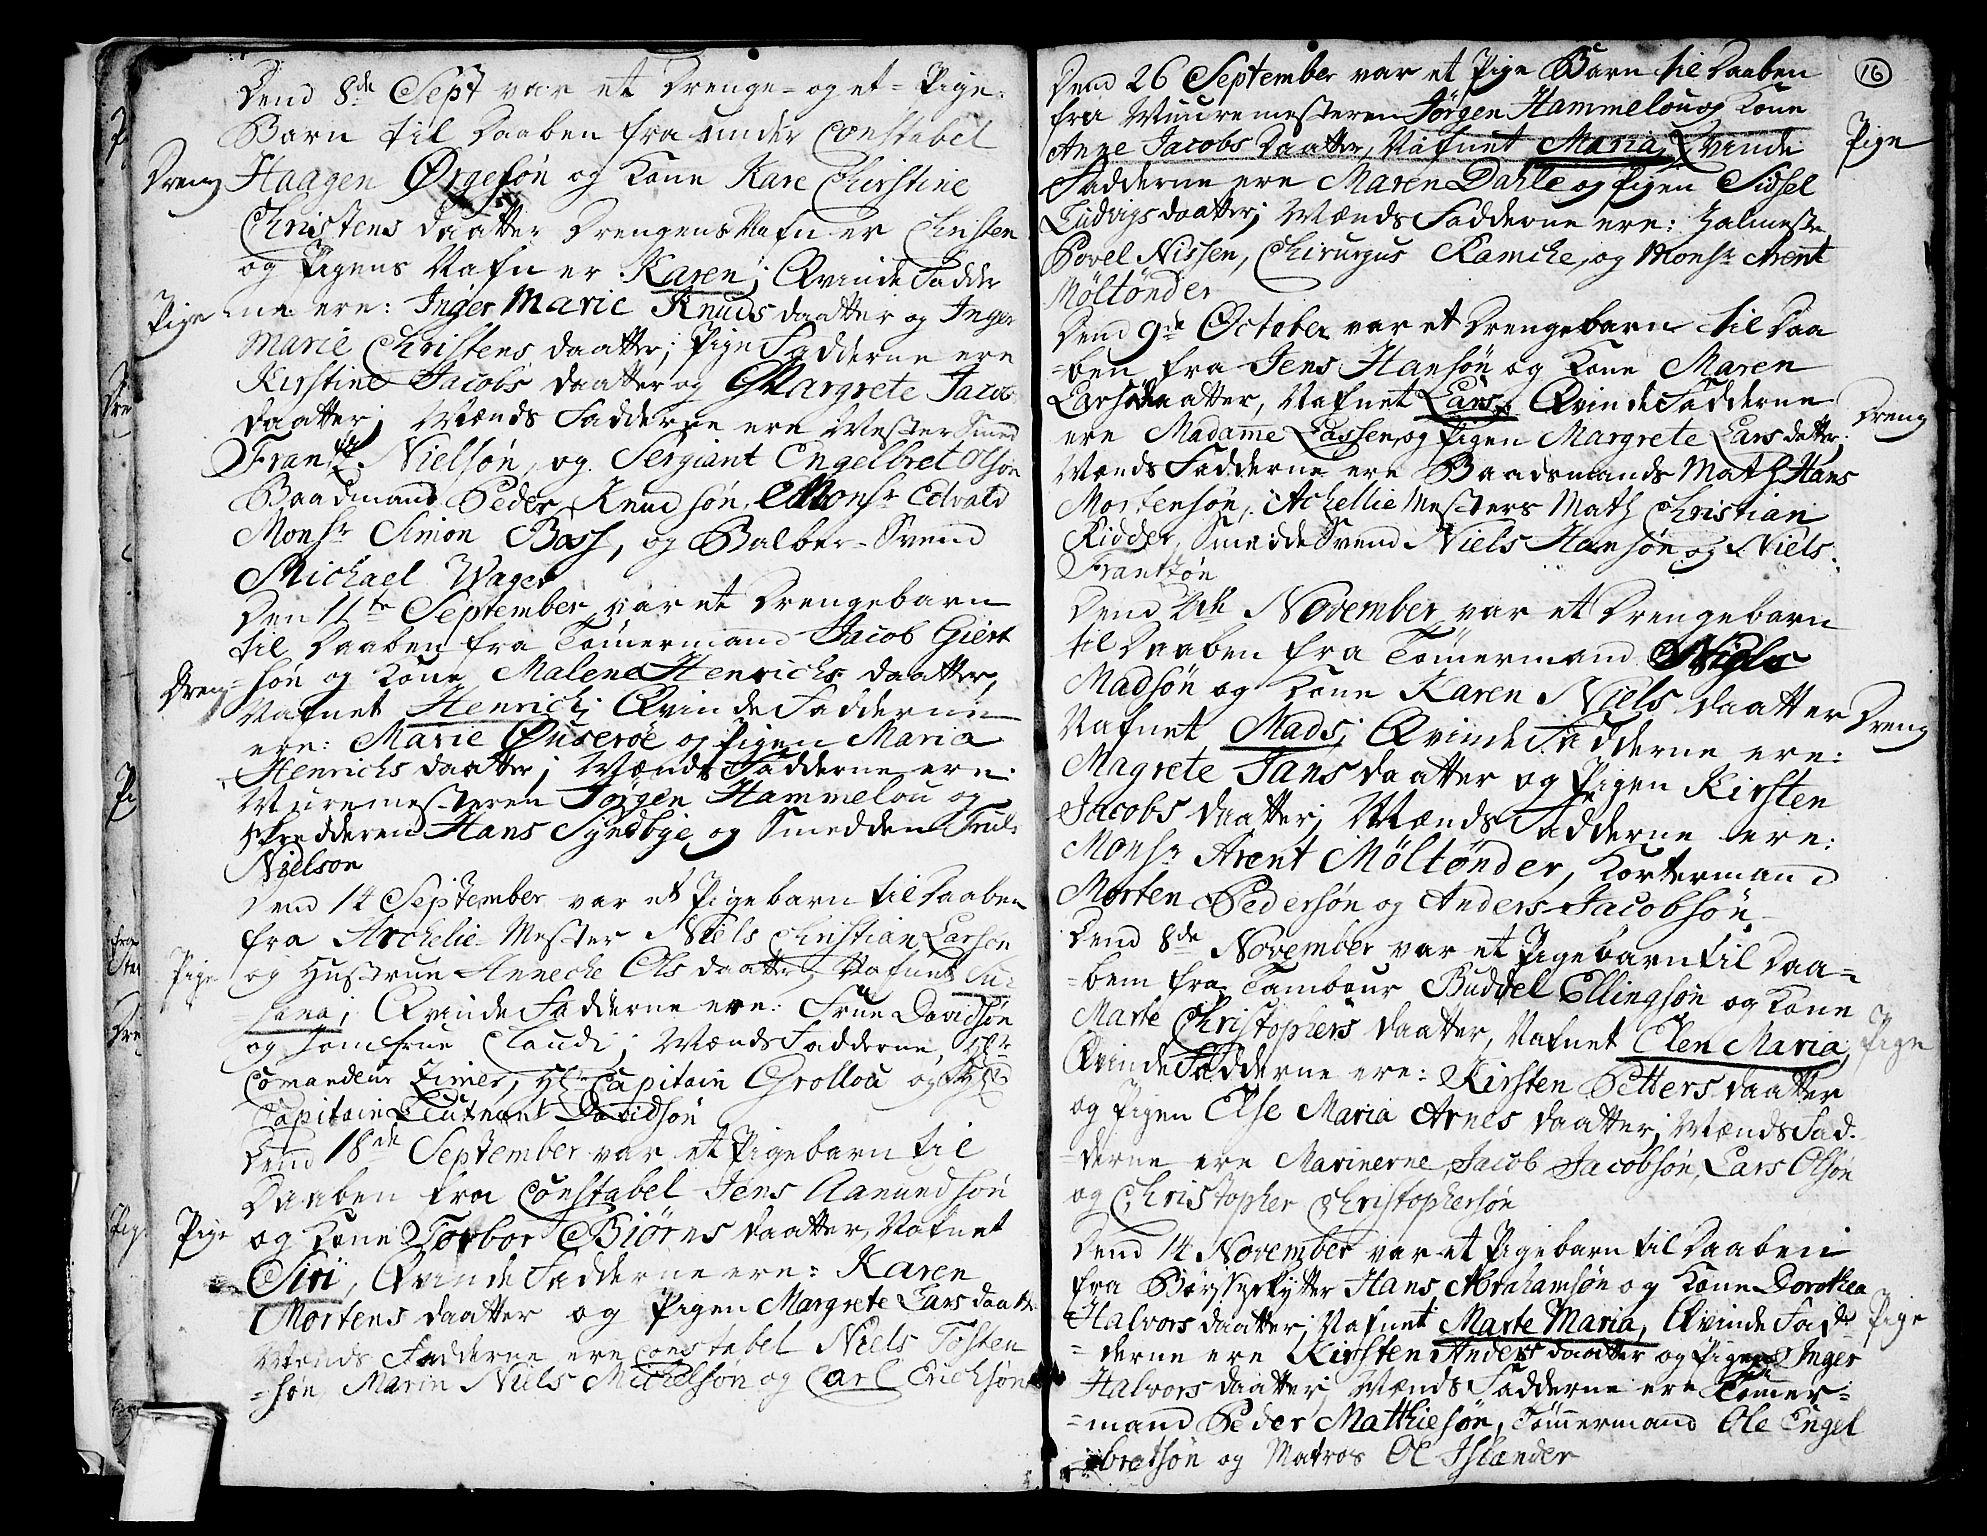 Dend 8de Sept var et Drenge- og et- Pige-
Barn til Daaben fra under Constabel
Dreng Haagen Ørgesøn og Kone Kare Chirstine
Christens daatter Drengens Nafn er Christen
og Pigens Nafn er Karen; Qvinde Fadder
Pige ne ere: Inger Marie Knuds daatter og Inger
Marie Christens daatter; Pige Fadderne ere
Kirstine Jacobs daatter og Margrete Jacobs
daatter; Mænds Fadderne ere Mester Smed
Frantz Nielsøn, og Sergiant Engelbret Olsøn
Baadmand Peder Knudsøn, Monsr Edvald
Monsr Simon Bash, og Balber-Svend
Michael Wager
Den 11te September var et Drengebarn
til Daaben fra Tømermand Jacob Giert
Dreng søn og Kone Malene Henrichs daatter,
Nafnet Henrich; Qvinde Fadderne
ere: Marie Ønserøe og Pigen Maria
Henrichs daatter; Mænds Fadderne ere
Muremesteren Jørgen Hammelou og
Skredderen Hans Syndbye og Smedden Truls
Nielson
Dend 14 September var et Pigebarn til Daaben
fra Archelie Mester Niels Christian Larsøn
Pige og Hustrue Annecke Ols daatter, Nafnet Su-
sana; Qvinde Fadderne ere: Frue Davidsøn
og Jomfrue Claudi; Mænds Fadderne, Hr
Comandeur Zimer, Hr Capitain Grollou og
Capitain Leutnant Davidsøn
Dend 18de September var et Pigebarn til
Daaben fra Constabel Jens Aamundsøn
Pige og Kone Torbor Biørns daatter, Nafnet
Siri, Qvinde Fadderne ere: Karen
Mortens daatter og Pigen Margrete Lars daatter
Mænds Fadderne ere Constabel Niels Tosten
=søn Marin Niels Michelsøn og Carl Erichsøn
16
Dend 26 September var et Pige Barn til Daaben
fra Muuremesteren Jørgen Hammelou og Kone
Ange Jacobs Daatter, Nafnet Maria, Qvinde Pige
Fadderne ere Maren Dahle og Pigen Sidsel
Ludvigs daatter; Mænds Fadderne ere:
Povel Nissen, Chirurgus Ramche, og Monsr Arent
Møltønder
Dend 9de October var et Drengebarn til Daa
=ben fra Jens Hansøn og Kone Maren
Larsdaatter, Nafnet Lars, Qvinde Fadderne Dreng
ere Madame Lassen, og Pigen Margrete Lars datter
Mænds Fadderne ere Baadsmands Math Hans
Mortensøn, Achellie Mesters Math Christian
Ridder, Smedde Svend Niels Hansøn og Niels
Frantzøn
Dend 4de November var et Drengebarn
til Daaben fra Tømermand Niels
Madsøn og Kone Karen Niels daatter Dreng
Nafnet Mads; Qvinde Fadderne ere:
Magrete Jans daatter og Pigen Kirsten
Jacobs daatter; Mænds Fadderne ere:
Monsr Arent Møltønder, Kortermand
Morten Pedersøn og Anders Jacobsøn
Dend 8de November var et Pigebarn til Daa=
=bem fra Tambour Buddel Ellingsøn og Kone
Marte Christophers daatter, Nafnet Elen Maria, Pige
Qvinde Fadderne ere: Kirsten Petters daatter
og Pigen Else Maria Arnes daatter; Mænds Fad-
=derne ere Marinerne, Jacob Jacobsøn, Lars Olsøn
og Christopher Christophersøn
Dend 14 November var et Pigebarn til Daaben
fra Børsseskytter Hans Abrahamsøn og Kone Dorothea
Halvors daatter; Nafnet Marte Maria, Qvinde Fad= Pige
=derne ere Kirsten Anders daatter og Pigen Inger
Halvors daatter; Mænds Fadderne ere Tømer=
=mand Peder Matthiesøn, Tømmermand Ole Engel
bretsøn og Matros Ole Islænder